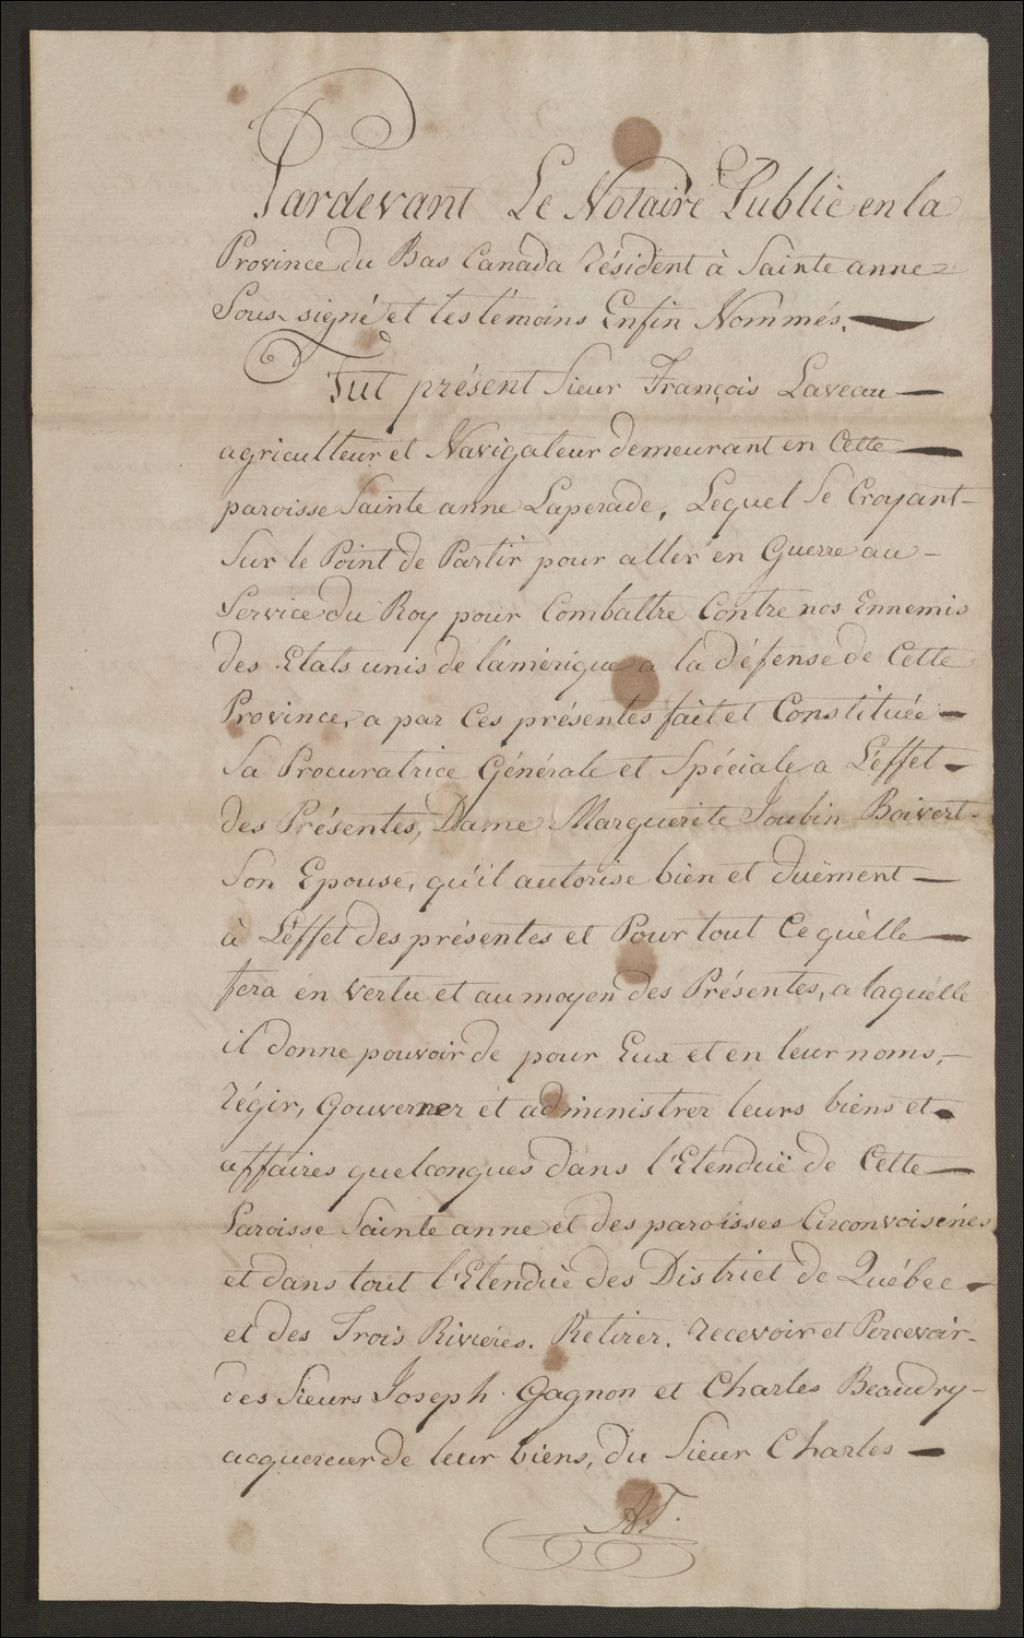 Pardevant Le Notaire Public en la
Province du Bas Canada résident à Sainte anne
Sous-signé et les témoins Enfin Nommés.
Fut présent Sieur François Laveau
agriculteur et Navigateur demeurant en Cette
paroisse Sainte anne Laperade, Lequel Se Croyant
Sur le Point de Partir pour aller en Guerre au
Service du Roy pour Combattre Contre nos Ennemis
des Etats unis de lámérique a la Défense de Cette
Province, a par Ces présentes fait et Constituée
Sa Procuratrice Générale et Spéciale a L'effet
des Présentes, Dame Marguerite Joubin Boivert
Son Epouse, qu'il autorise bien et duëment
à L'effet des présentes et Pour tout Ce qu'elle
fera en Vertu et au moyen des Présentes, a laquélle
il donne pouvoir de pour Eux et en leur noms,
régir, Gouverner et administrer leurs biens et
affaires quelconques dans l'Etenduë de Cette
Paroisse Sainte anne et des paroisses Circonvoisines
et dans tout l'Etenduë des District de Québec
et des Trois Riviéres. Retirer. recevoir et Percevoir
des Sieurs Joseph Gagnon et Charles Beaudry
acquereur de leur biens, du Sieur Charles
AT.